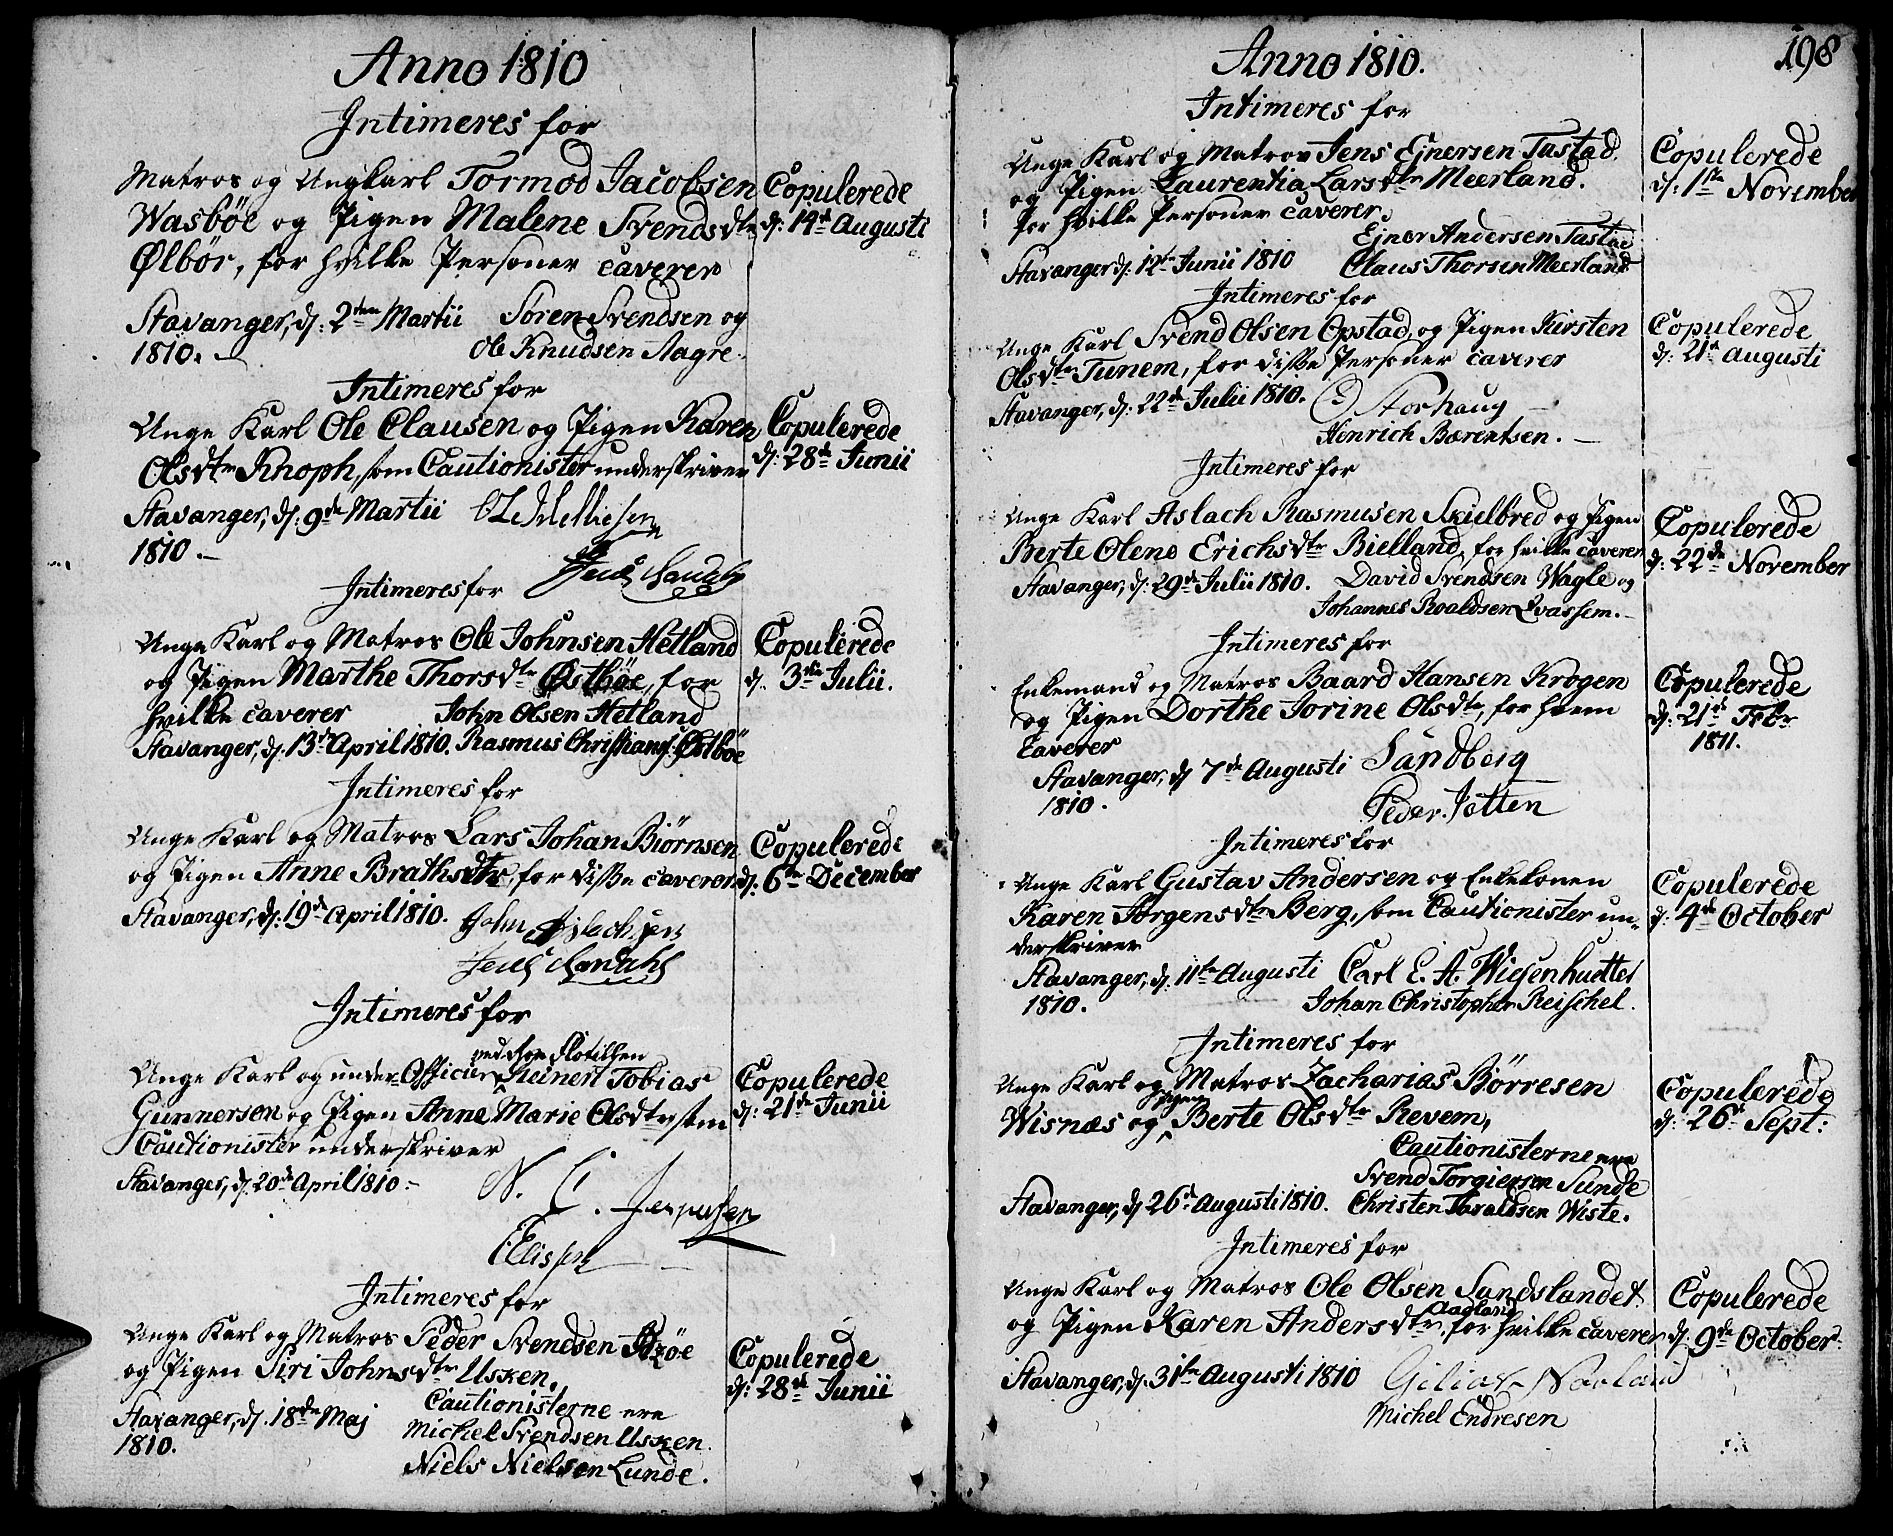 Anno 1810
Intimeres for
Matros og Ungkarl Tormod Jacobsen
Wasbøe og Pigen Malene Svendsdtr
Ølbør, for hvilke Personer caverer
Stavanger, d: 2den Martii Søren Svendsen og
1810. Ole Knudsen Aagre.
Copulerede
d: 14de Augusti
Intimeres for
Unge Karl Ole Clausen og Pigen Karen
Olsdtr Knoph, som Cautionister underskriver
Stavanger, d: 9de Martii
1810.
Copulerede
d: 28de Junii
Intimeres for
Unge Karl og Matros Ole Johnsen Hetland
og Pigen Marthe Thorsdtr Østbøe, for
hvilke caverer John Olsen Hetland
Stavanger, d. 13de April 1810. Rasmus Christians: Østbøe
Copulerede
d. 3die Julii.
Intimeres for
Unge Karl og Matros Lars Johan Biørnsen
og Pigen Anne Brathsdtr, for disse caverer
Stavanger, d. 19de April 1810. John
Copulerede
d. 6te December
Intimeres for
ved Roe Flotillen
Unge Karl og under-Officier Reinert Tobias
Gunnersen og Pigen Anne Marie Olsdtr, som
Cautionister underskriver
Stavanger, d. 20de April 1810.
N. C. Jespersen
Copulerede
d: 21de Junii
Intimeres for
Unge Karl og Matros Peder Svendsen
og Pigen Siri Johnsdtr Usken,
Cautionisterne ere
Stavanger, d. 18de Maj Michel Svendsen Usken.
1810. Niels Nielsen Lunde.
Copulerede
d: 28de Junii
198
Anno 1810.
Intimeres for
Unge Karl og Matros Jens Ejnersen Tastad
og Pigen Laurentia Larsdtr Meerland.
for hvilke Personer caverer,
Ejner Andersen Tastad
Stavanger d: 12te Junii 1810 Claus Thorsen Meerland
Copulerede
d: 1ste November
Intimeres for
Unge Karl Svend Olsen Opstad, og Pigen Kirsten
Olsdtr Tunem, for disse Personer caverer
Stavanger, d: 22de Julii 1810. Storhaug
Henrich Bærentsen.
Copulerede
d: 21de Augusti
Intimeres for
Unge Karl Aslach Rasmusen Skielbred og Pigen
Berte Olene Erichsdtr Bielland, for hvilke caverer
Stavanger, d: 29de Julii 1810. David Svendsen Wagle og
Johannes Roaldsen Qvassem.
Copulerede
d: 22de November
Intimeres for
Enkemand og Matros Baard Hansen Krogen
og Pigen Dorthe Jorine Olsdtr, for hvem
Caverer
Stavanger, d 7de Augusti Sandberg
1810. Peder Jotten
Copulerede
d: 21de Febr
1811.
Intimeres for
Unge Karl Gustav Andersen og Enkekonen
Karen Jørgensdtr Berg, som Cautionister un-
derskriver
Stavanger, d. 11te Augusti Carl E. A. Wiesenhutter
1810. Johan Christopher Reischel.
Copulerede
d: 4de October
Intimeres for
Unge Karl og Matros Zacharias Børresen
Wisnæs og Pigen Berte Olsdtr Revem,
Cautionisterne ere
Svend Torgiersen Sunde
Stavanger, d. 26de Augusti 1810. Christen Tharaldsen Wiste.
Copulerede
d: 26de Sept:
Intimeres for
Unge Karl og Matros Ole Olsen Sandslandet
og Pigen Karen Andersdtr Aagland, for hvilke caverer
Stavanger, d. 31te Augusti 1810
Michel Endresen
Copulerede
d: 9de October.